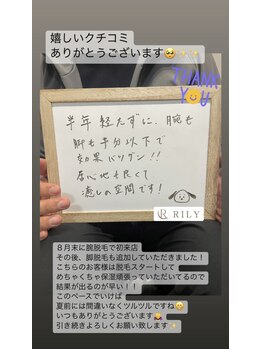 嬉しいクチコミ
ありがとうございます🥺✨✨
THANK
YOU
半年経たずに、腕も
脚も半分以下で
効果バツグン!!
居心地も良くて
癒しの空間です!
RILY
８月末に腕脱毛で初来店
その後、脚脱毛も追加していただきました！
こちらのお客様は脱毛スタートして
めちゃくちゃ保湿頑張っていただいてるので
結果が出るのが早い！！
このペースでいけば
夏前には間違いなくツルツルですね
いつもありがとうございます
引き続きよろしくお願い致します✨